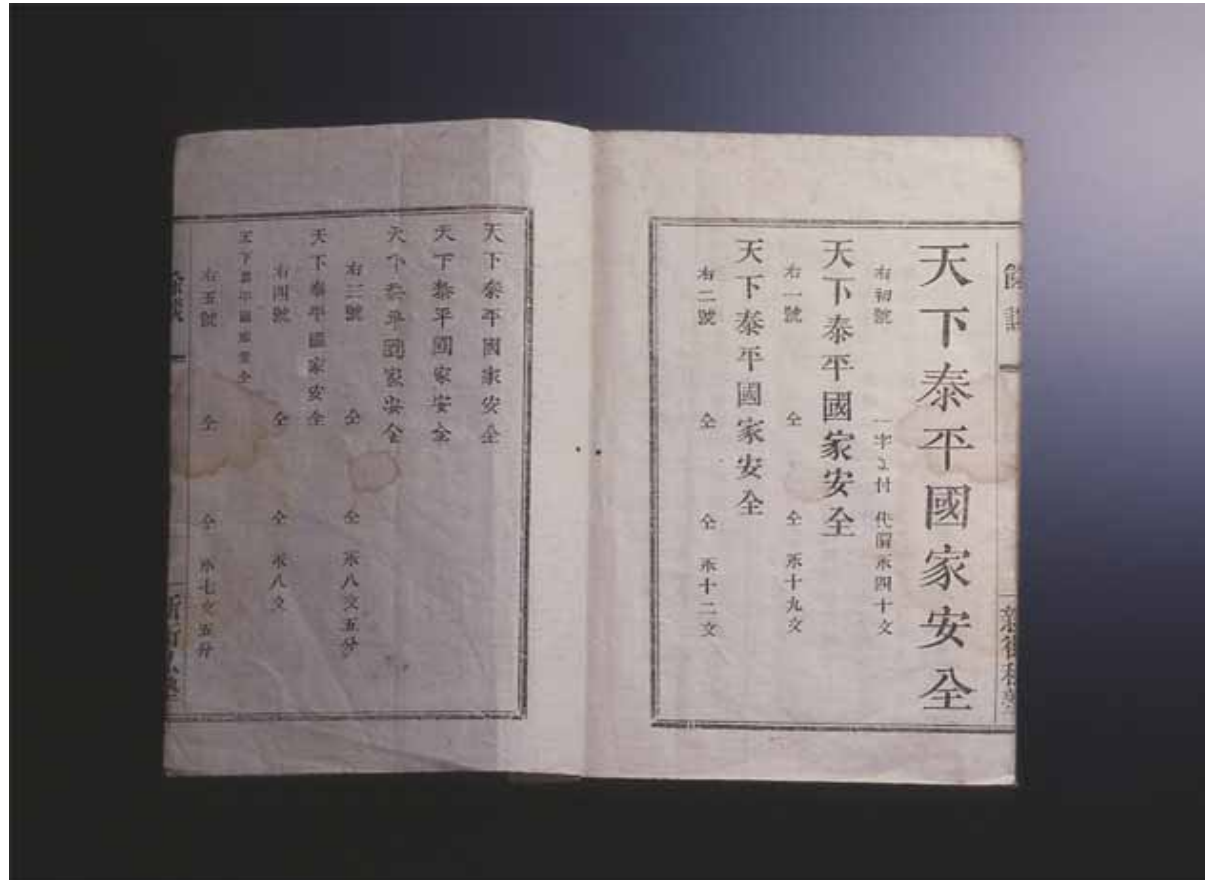 餘談 新街私塾
天下泰平國家安全
右初號 一字ニ付 代價永四十文
天下泰平國家安全
右一號 仝 仝 永十九文
天下泰平國家安全
右二號 仝 仝 永十二文
天下泰平國家安全
天下泰平國家安全
天下泰平國家安全
右三號 仝 仝 永八文五分
天下泰平國家安全
右四號 仝 仝 永八文
天下泰平國家安全
右五號 仝 仝 永七文五分
餘談 新街私塾